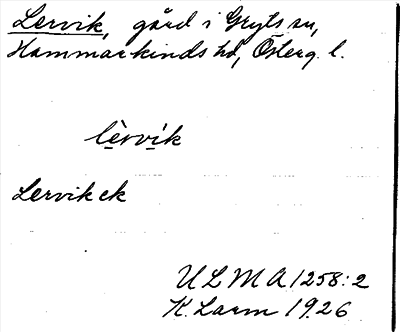 Lervik, gård i Gryts sn,
Hammarkinds hd, Österg. l.
lèrvík
Lervik ck
ULMA 1258:2
K. Larm 1926